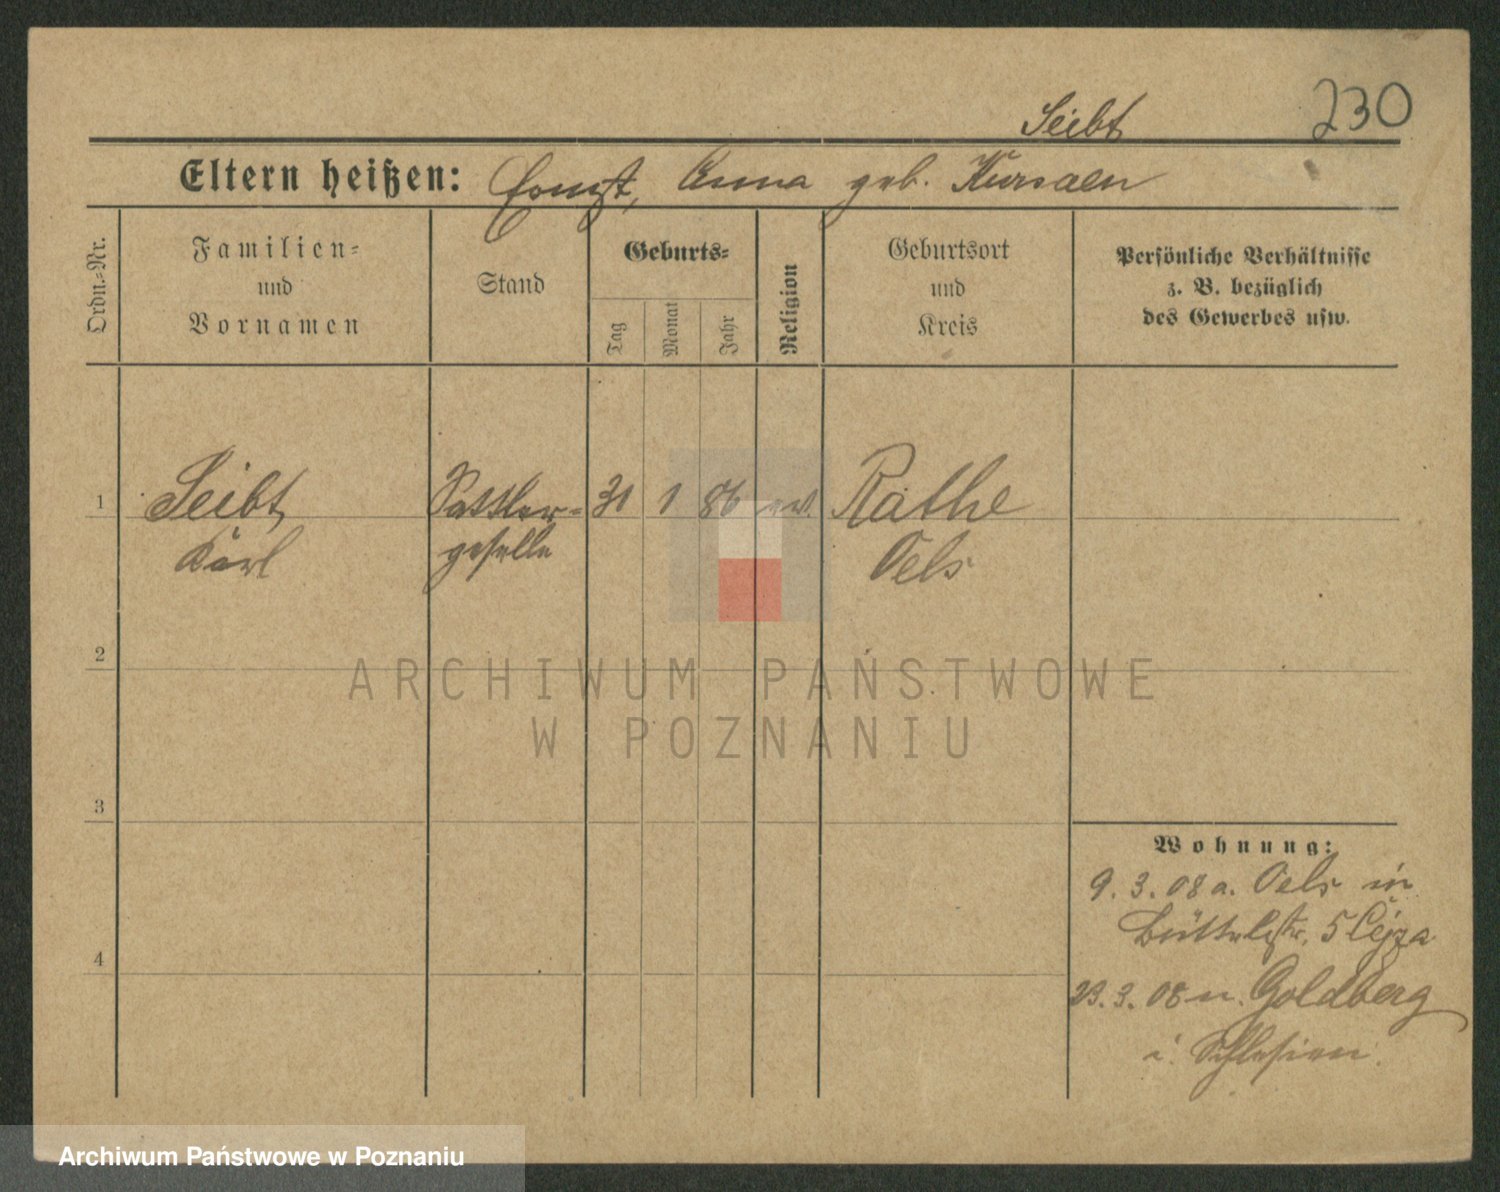 230
Seibt
Eltern heißen: Ernst, Anna geb.
Ordn.=Nr.
Familien=
und
Vornamen
Stand
Geburts=
Tag
Monat
Jahr
Religion
Geburtsort
und
Kreis
Persönliche Verhältnisse
z. B. bezüglich
des Gewerbes usw.
1 Seibt Sattler= 31 1 86 ev. Rathe
Karl geselle Oels
2
3
4
Wohnung:
9. 3. 08 a. Oels in
5
23. 3. 08 n. Goldberg
i. Schlesien.
ARCHIWUM PAŃSTWOWE
W POZNANIU
Archiwum Państwowe w Poznaniu